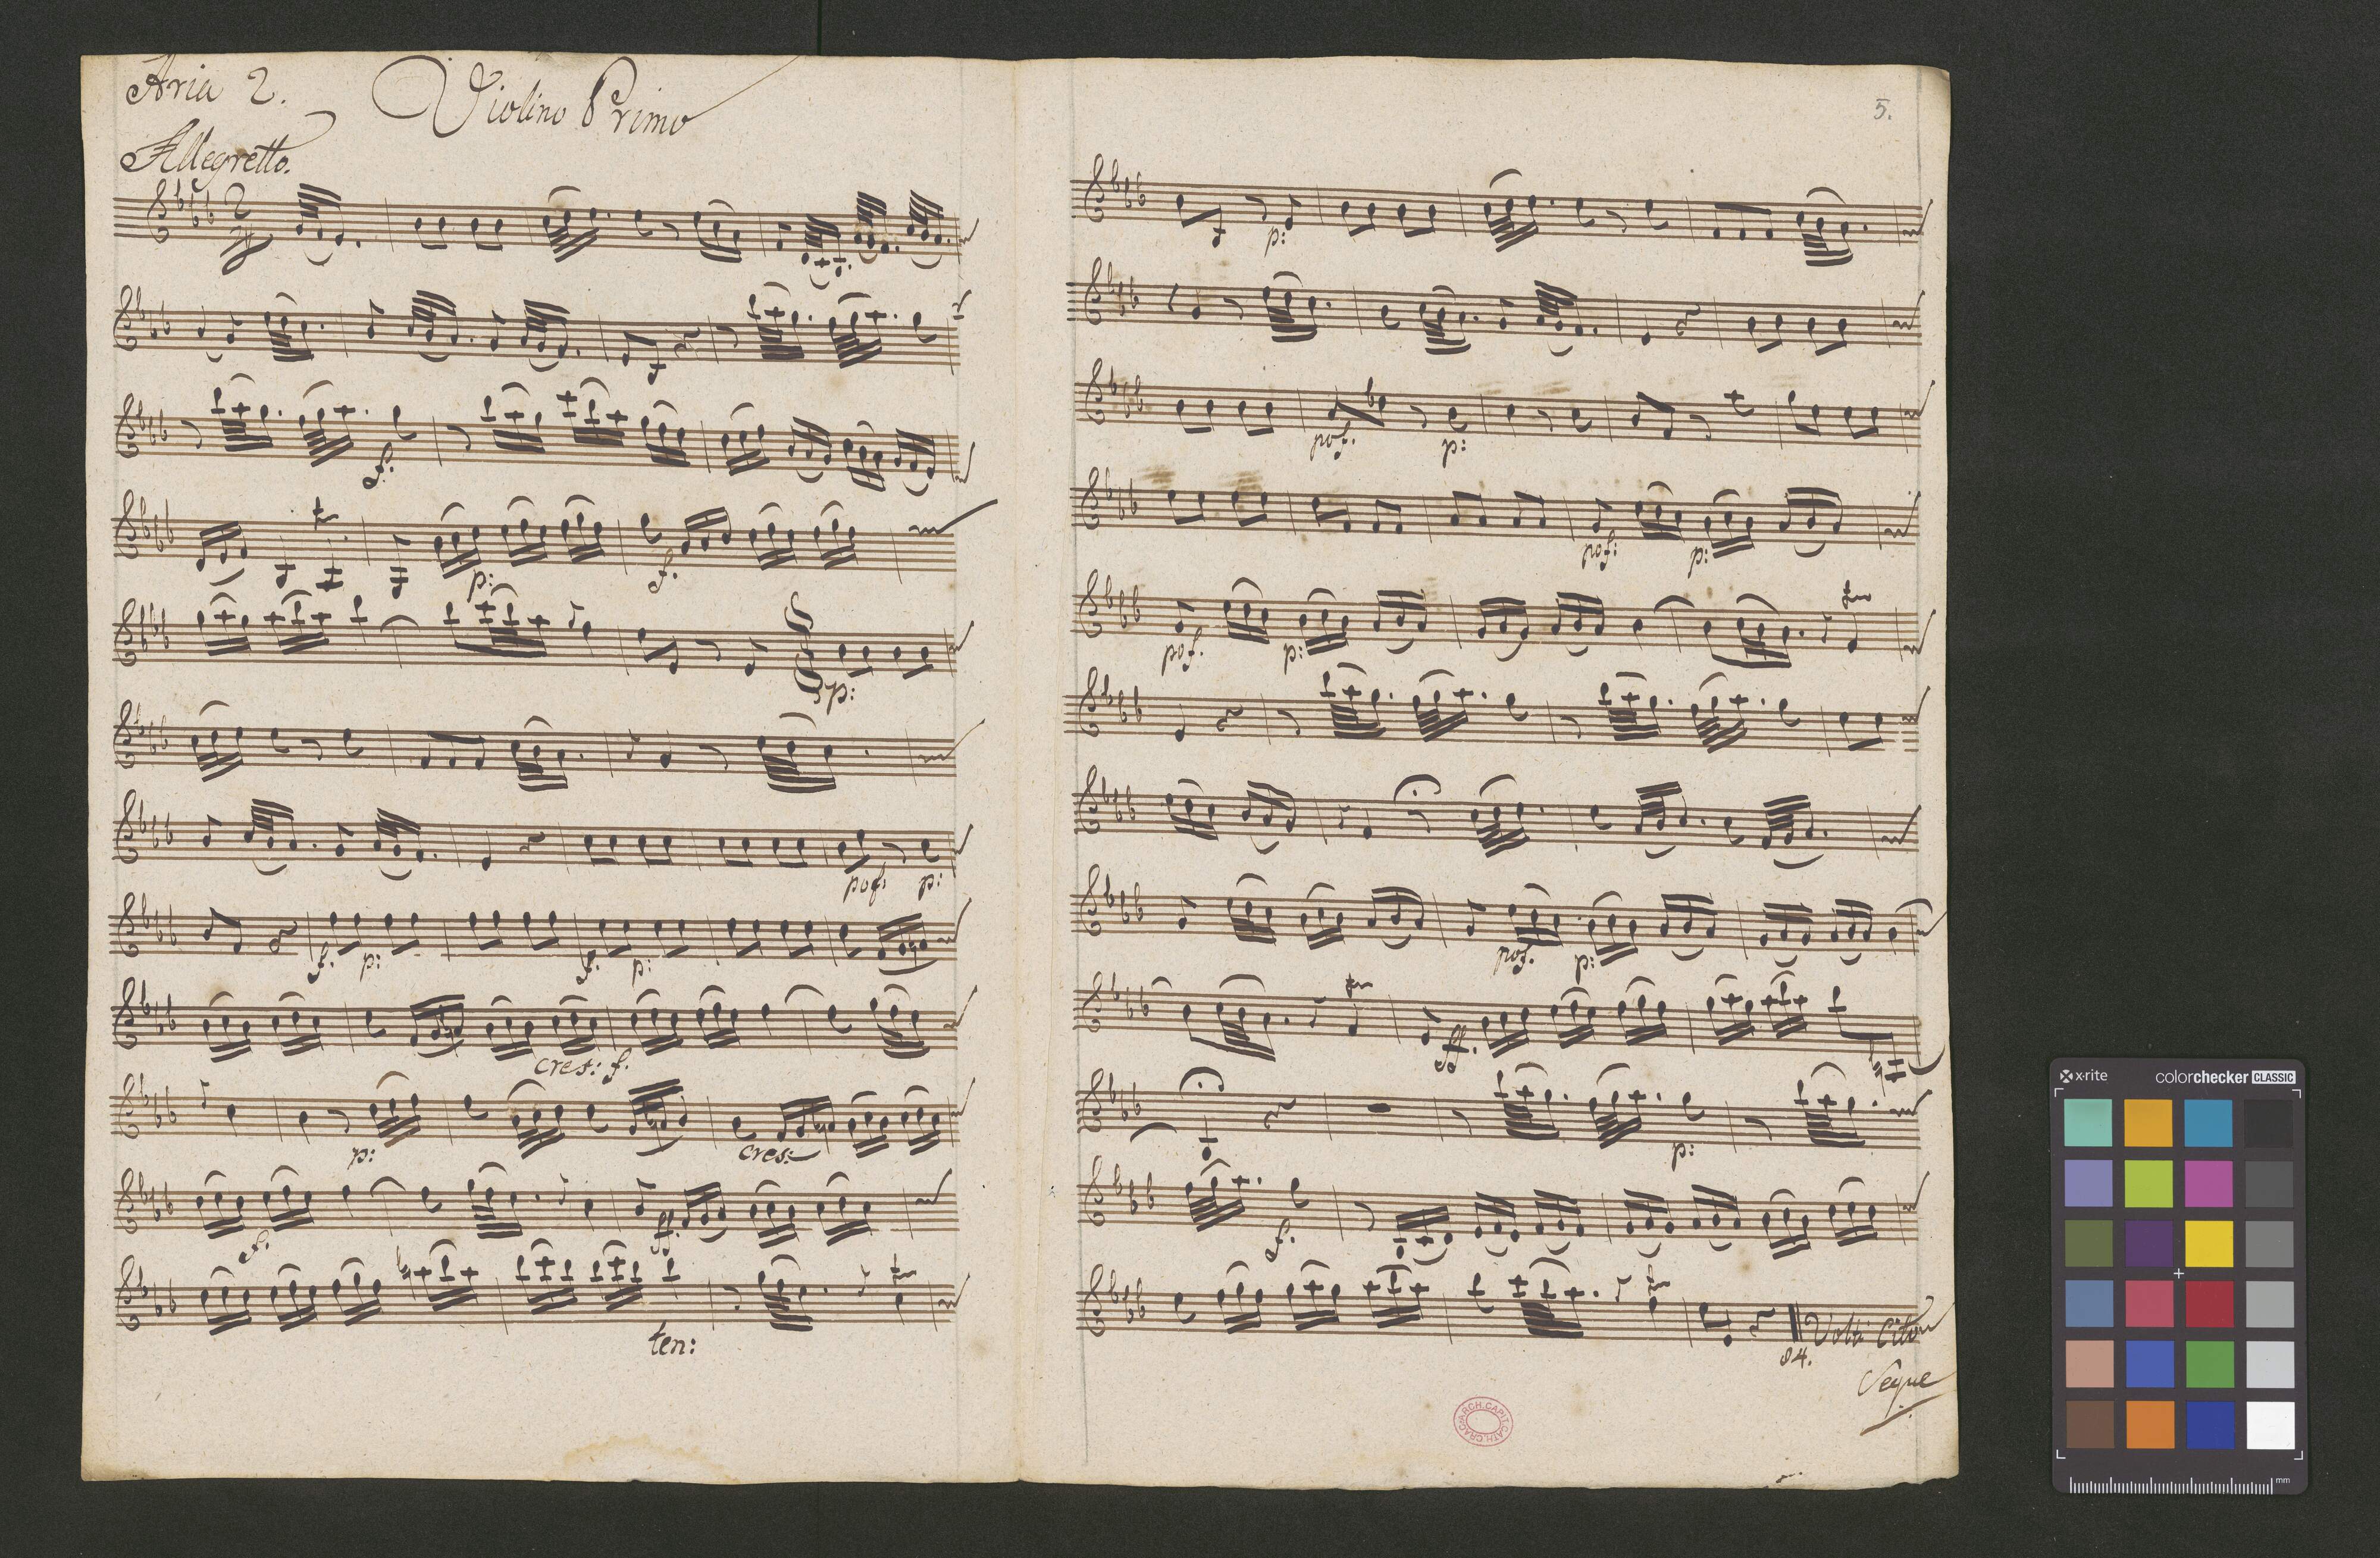 Aria 2. Violino Primo
Allegretto.
2/4
f.
tr
p: f.
p:
pof: p:
f. p: f. p:
cres: f.
p: cres:
f. ff.
tr
ten:
5.
p:
pof. p:
pof: p:
pof. p: tr
pof. p:
tr ff.
p:
f.
tr
84. Volti Cito
Segue
ARCH. CAPIT. CATH. CRAC.
x-rite colorchecker CLASSIC
mm